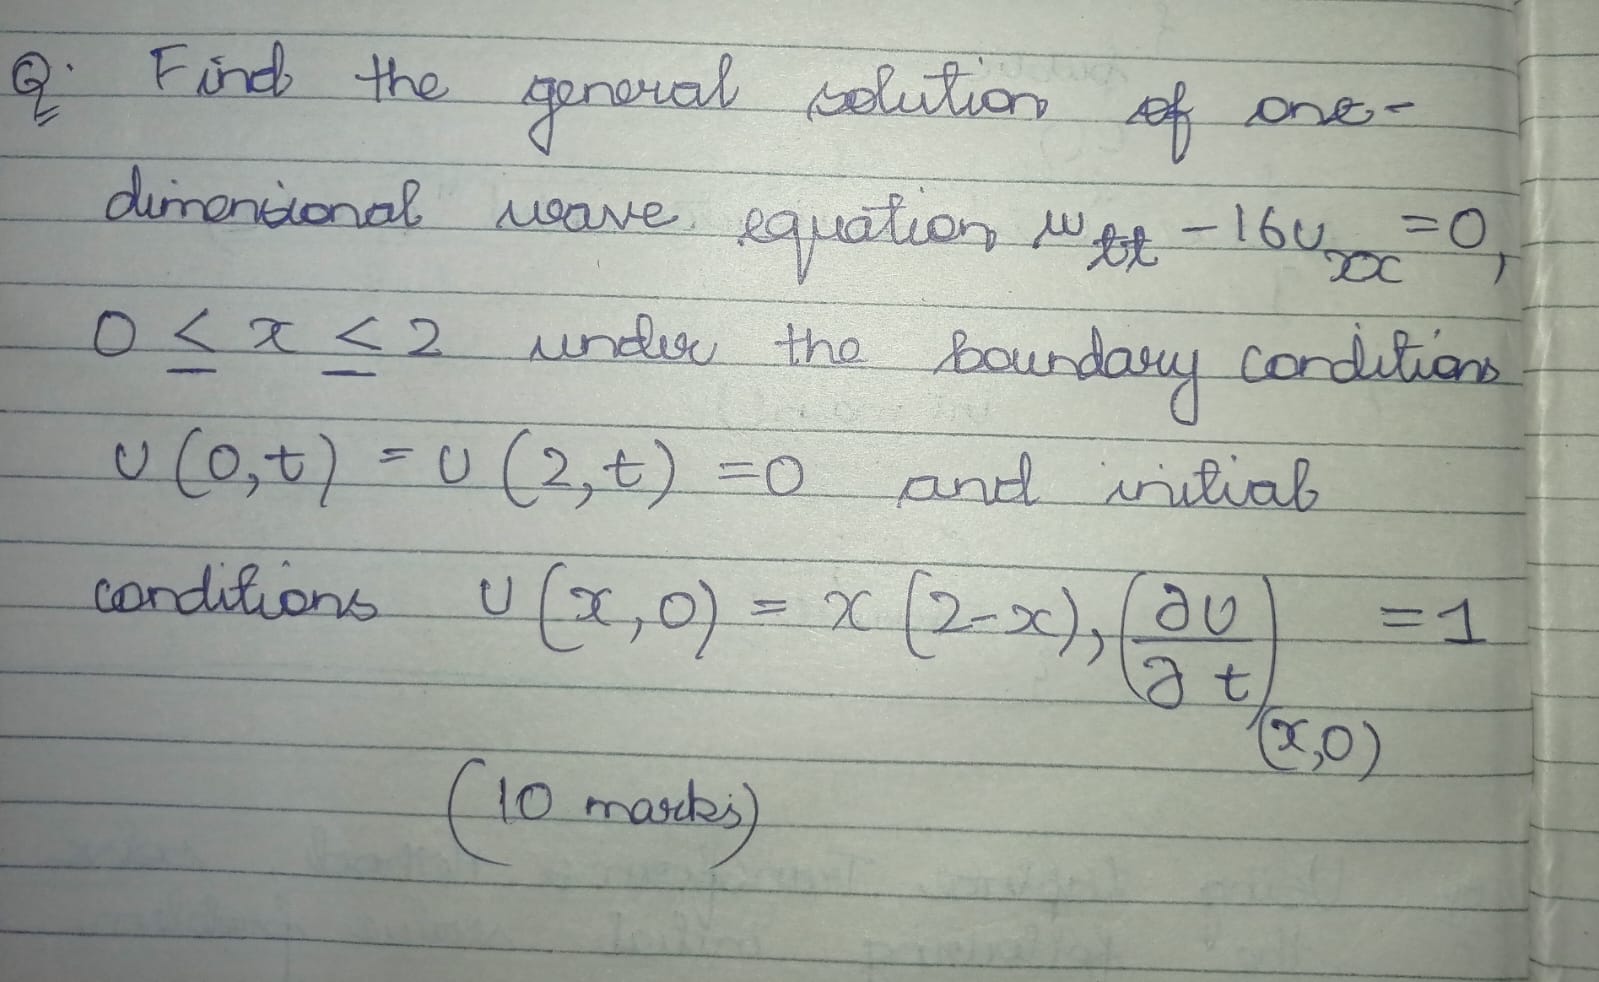 Q. Find the general solution of one-
dimensional wave equation u_tt - 16u_xx = 0,
0 ≤ x ≤ 2 under the boundary conditions
u(0,t) = u(2,t) = 0 and initial
conditions u(x,0) = x(2-x), (∂u/∂t)_(x,0) = 1
(10 marks)